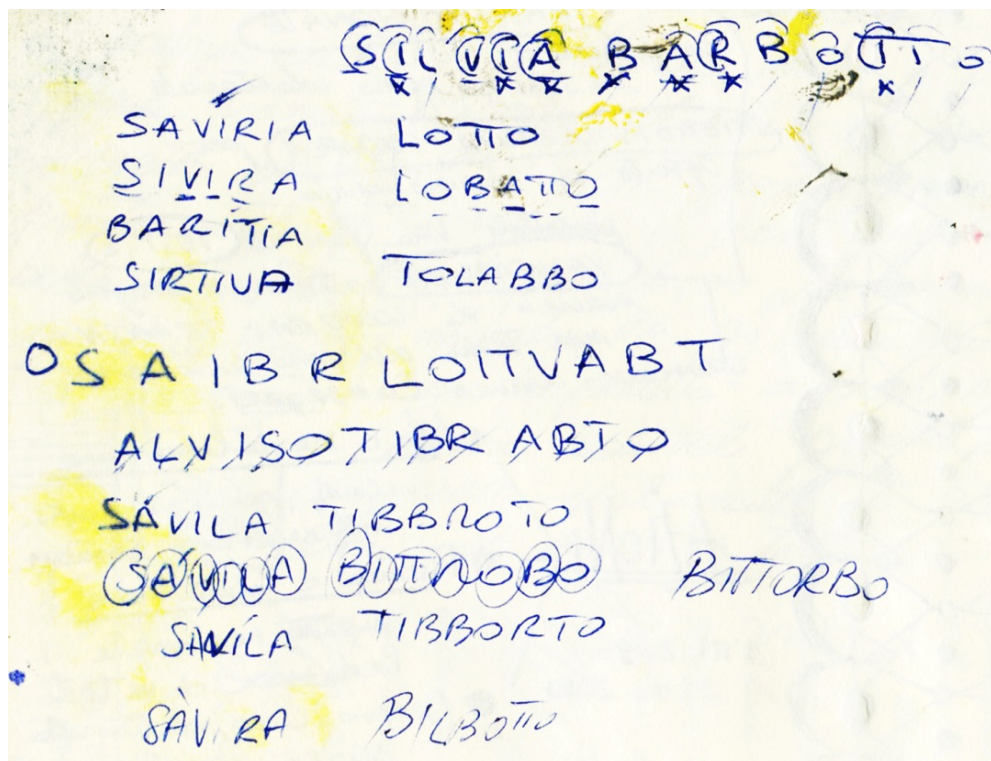 SILVIA BARBOTTO
SAVÍRIA LOTTO
SIVIRA LOBATTO
BARITIA
SIRTIVA TOLABBO
O S A I B R LOITVABT
ALVISOTIBR ABTO
SÁVILA TIBBROTO
SÁVILA BITTROBO BITTORBO
SAVÍLA TIBBORTO
SÀVIRA BILBOTTO